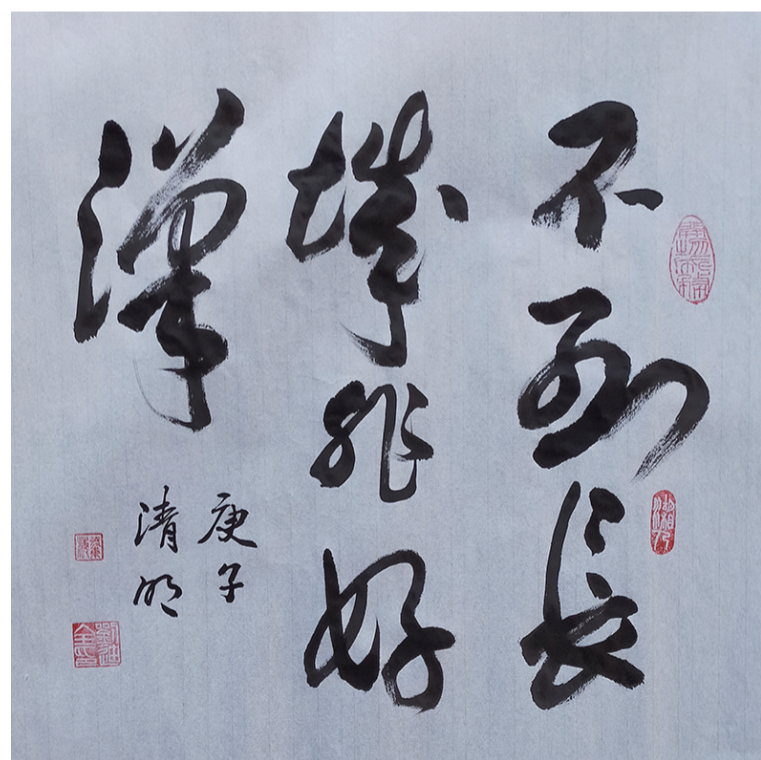 不到長
城非好
漢
庚子
清明